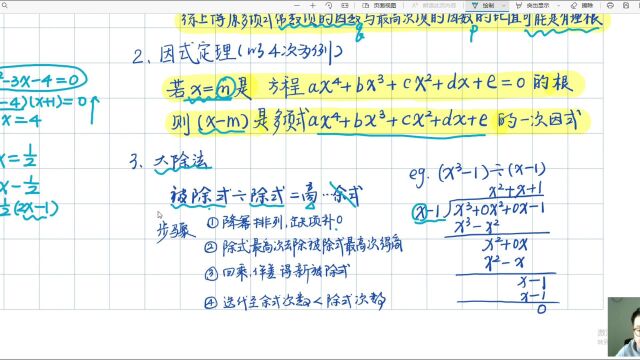 页面视图
绘制
突出显示
综上得原多项式常数项的因数与最高次项的因数的比值可能是有理根
q
p
2. 因式定理(以4次为例)
若 x=m 是 方程 ax⁴+bx³+cx²+dx+e=0 的根
则 (x-m) 是多项式 ax⁴+bx³+cx²+dx+e 的一次因式
²-3x-4=0
-4)(x+1)=0
x=4
x=1/2
x-1/2
1/2(2x-1)
3. 大除法
被除式÷除式=商…余式
步骤
① 降幂排列,缺项补0
② 除式最高次去除被除式最高次得商
③ 回乘,作差得新被除式
④ 迭代至余式次数<除式次数
eg. (x³-1)÷(x-1)
x²+x+1
x-1 x³+0x²+0x-1
x³-x²
x²+0x
x²-x
x-1
x-1
0